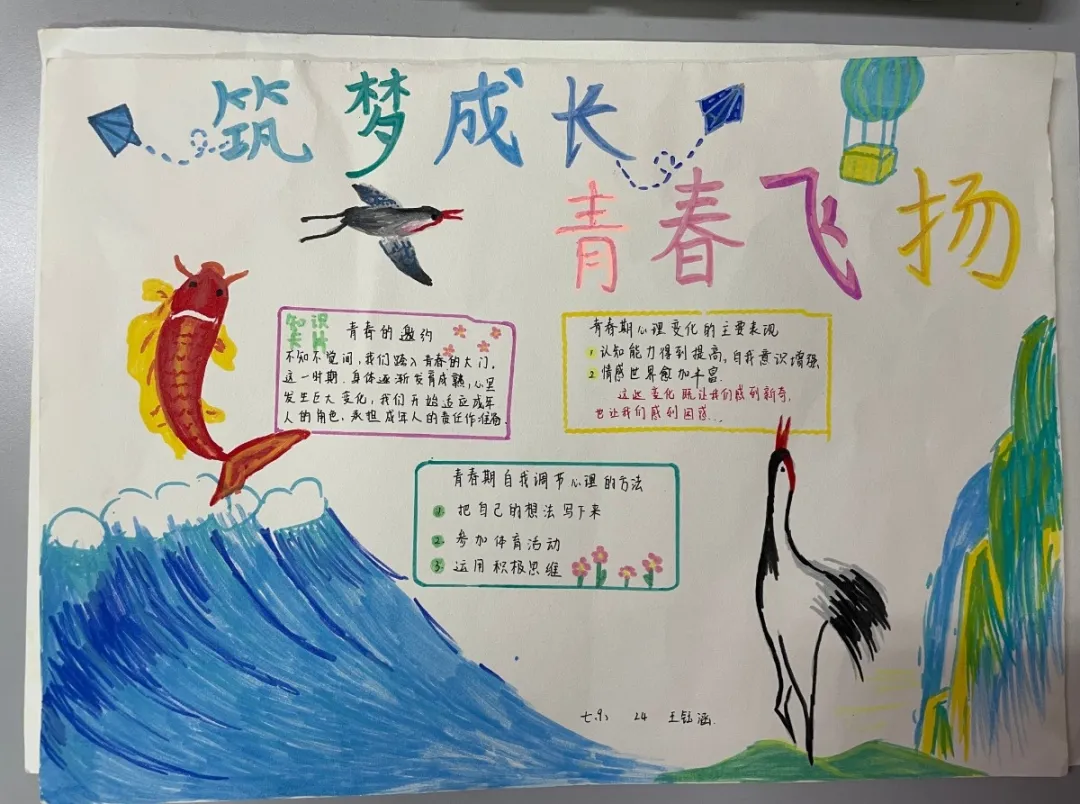 筑梦成长
青春飞扬
知识
卡片
青春的邀约
不知不觉间,我们踏入青春的大门。
这一时期.身体逐渐发育成熟,心里
发生巨大变化,我们开始适应成年
人的角色,承担成年人的责任作准备.
青春期心理变化的主要表现
1 认知能力得到提高,自我意识增强
2 情感世界愈加丰富.
这些变化既让我们感到新奇,
也让我们感到困惑...
青春期自我调节心理的方法
1. 把自己的想法写下来
2. 参加体育活动
3 运用积极思维
七.9、 24 王钰涵.